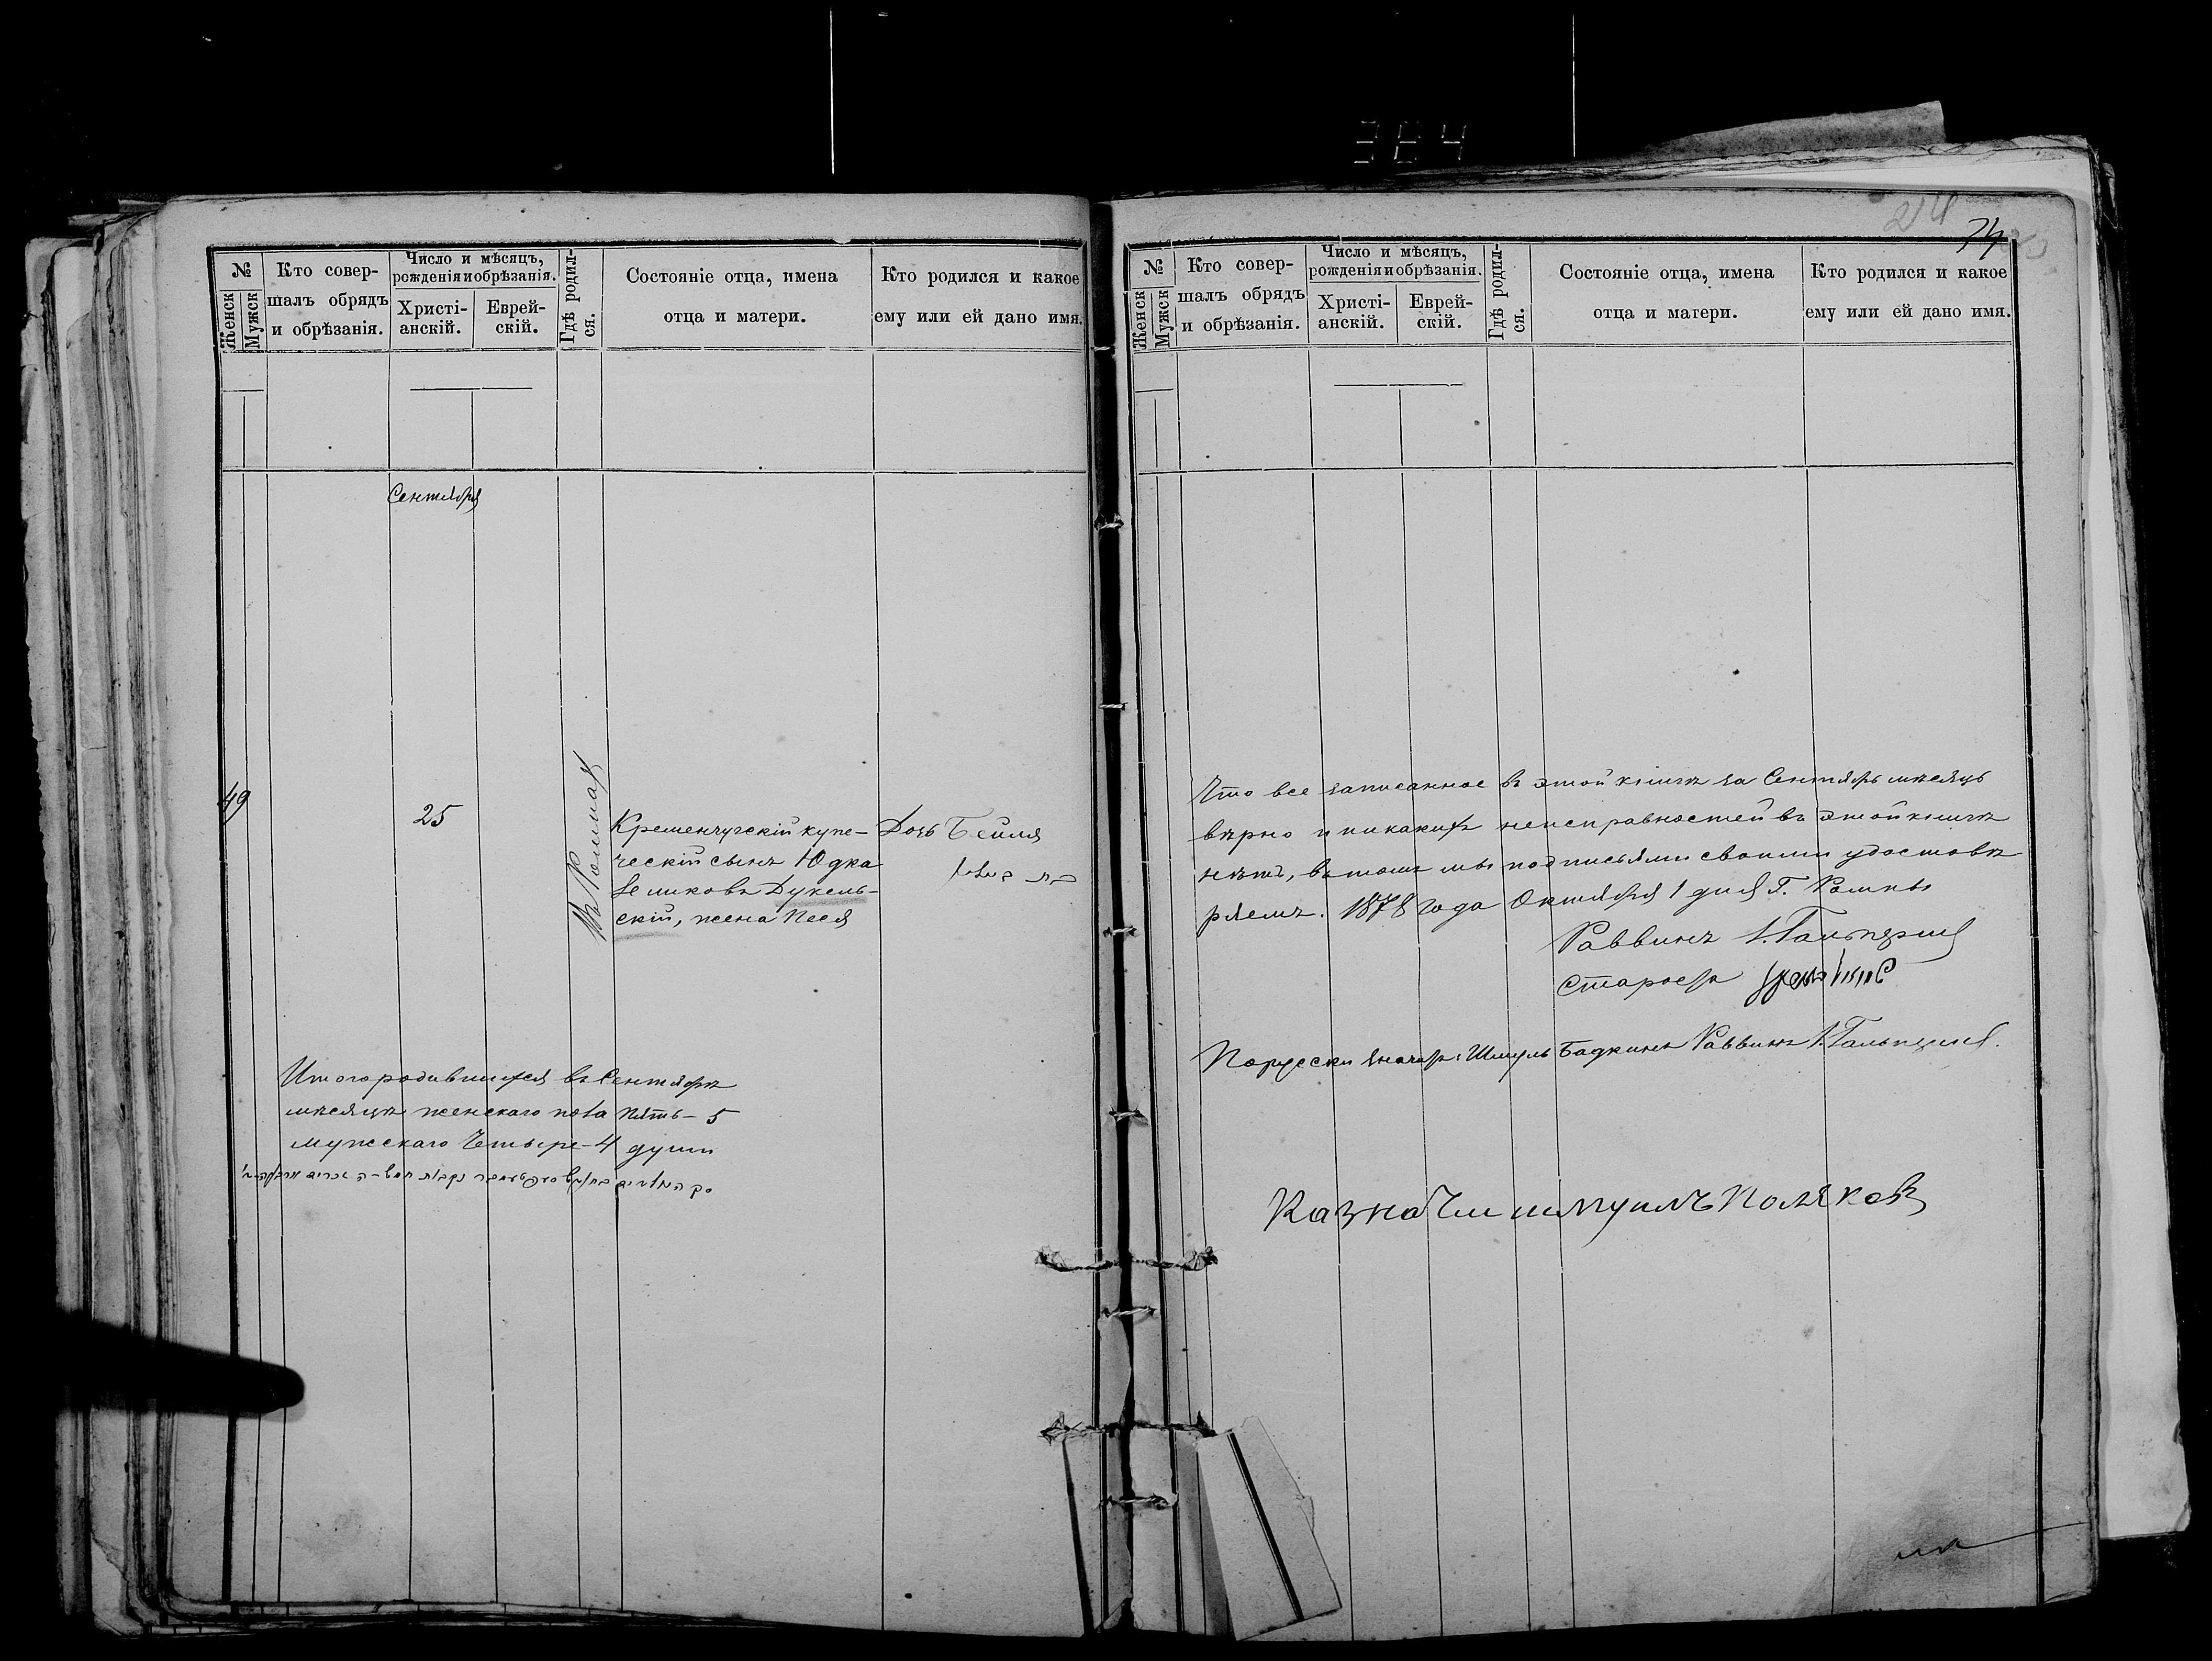 364
№
Женск
Мужск
Кто совер-
шалъ обрядъ
и обрѣзанія.
Число и мѣсяцъ,
рожденія и обрѣзанія.
Христі-
анскій.
Еврей-
скій.
Гдѣ родил-
ся.
Состояніе отца, имена
отца и матери.
Кто родился и какое
ему или ей дано имя.
Сентября
49
25
Въ Ромнах
Кременчугскій купе-
ческій сынъ Юдка
Дукель-
скій, жена Песя
Дочь Бейля
Итого родившихся въ Сентябрѣ
мѣсяцѣ женскаго пола пять - 5
мужскаго Четыре - 4 души
214
74
№
Женск
Мужск
Кто совер-
шалъ обрядъ
и обрѣзанія.
Число и мѣсяцъ,
рожденія и обрѣзанія.
Христі-
анскій.
Еврей-
скій.
Гдѣ родил-
ся.
Состояніе отца, имена
отца и матери.
Кто родился и какое
ему или ей дано имя.
Что все записанное въ этой книгѣ за Сентябрь мѣсяцъ
вѣрно и никакихъ неисправностей въ этой книгѣ
нѣтъ, въ томъ мы подписями своими удостовѣ
ряемъ. 1878 года Октября 1 дня Г. Ромны
Раввинъ І. Гальперинъ
Староста
Порусски значитъ: Шмуль Бадкинъ Раввинъ І. Гальперинъ.
Казначи шмуилъ Поляковъ